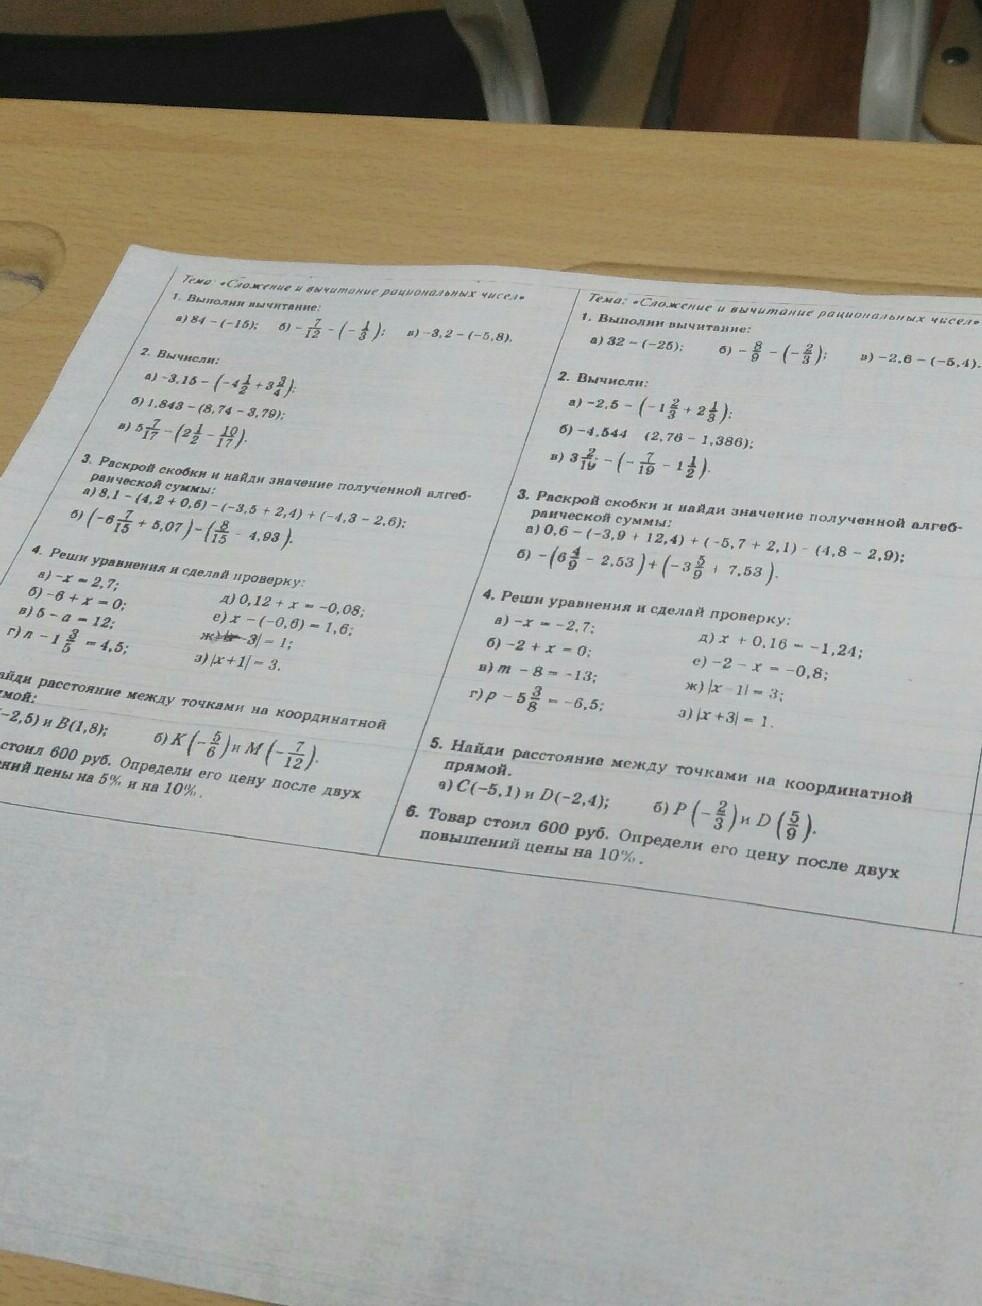 Тема: «Сложение и вычитание рациональных чисел»
1. Выполни вычитание:
а) 84 − (−15); б) − 7/12 − (− 1/3); в) −3,2 − (−5,8).
2. Вычисли:
а) −3,15 − (−4 1/2 + 3 3/4);
б) 1,843 − (8,74 − 3,79);
в) 5 7/17 − (2 1/2 − 10/17).
3. Раскрой скобки и найди значение полученной алгеб-
раической суммы:
а) 8,1 − (4,2 + 0,6) − (−3,5 + 2,4) + (−4,3 − 2,6);
б) (−6 7/15 + 5,07) − (8/15 − 4,93).
4. Реши уравнения и сделай проверку:
а) −x = 2,7; д) 0,12 + x = −0,08;
б) −6 + x = 0; е) x − (−0,6) = 1,6;
в) 5 − a = 12; ж) − 3| = 1;
г) n − 1 3/5 = 4,5; з) |x + 1| = 3.
айди расстояние между точками на координатной
мой:
−2,5) и B(1,8); б) K(− 5/6) и M(− 7/12).
стоил 600 руб. Определи его цену после двух
ний цены на 5% и на 10%.
Тема: «Сложение и вычитание рациональных чисел»
1. Выполни вычитание:
а) 32 − (−25); б) − 8/9 − (− 2/3); в) −2,6 − (−5,4).
2. Вычисли:
а) −2,5 − (−1 2/3 + 2 1/3);
б) −4,544 (2,76 − 1,386);
в) 3 2/19 − (− 7/19 − 1 1/2).
3. Раскрой скобки и найди значение полученной алгеб-
раической суммы:
а) 0,6 − (−3,9 + 12,4) + (−5,7 + 2,1) − (4,8 − 2,9);
б) −(6 4/9 − 2,53) + (−3 5/9 + 7,53).
4. Реши уравнения и сделай проверку:
а) −x = −2,7; д) x + 0,16 = −1,24;
б) −2 + x = 0; е) −2 − x = −0,8;
в) m − 8 = −13; ж) |x − 1| = 3;
г) p − 5 3/8 = −6,5; з) |x + 3| = 1.
5. Найди расстояние между точками на координатной
прямой.
а) C(−5,1) и D(−2,4); б) P(− 2/3) и D(5/9).
6. Товар стоил 600 руб. Определи его цену после двух
повышений цены на 10%.